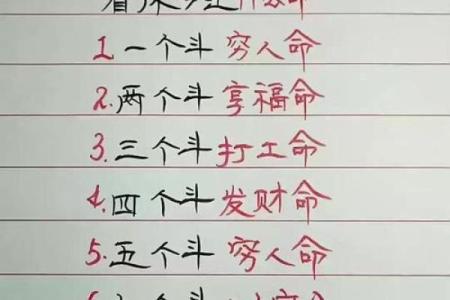 1.一个斗 穷人命
2.两个斗 享福命
3.三个斗打工命
4.四个斗 发财命
5.五个斗 穷人命